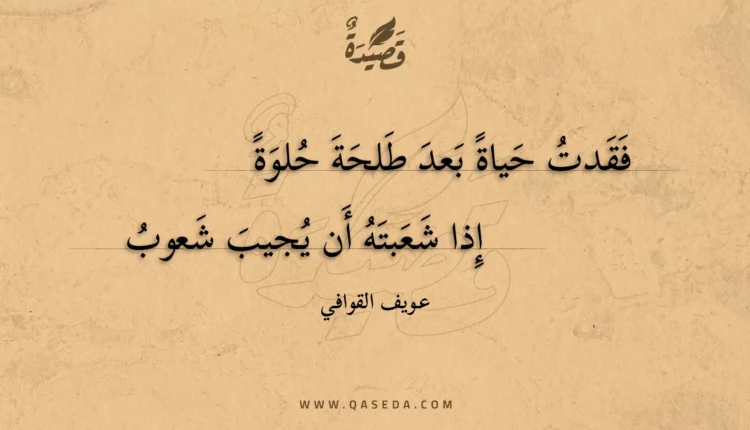 قَصِيْدَةٌ
فَقَدتُ حَياةً بَعدَ طَلحَةَ حُلوَةً
إِذا شَعَبتَهُ أَن يُجيبَ شَعوبُ
عويف القوافي
WWW.QASEDA.COM